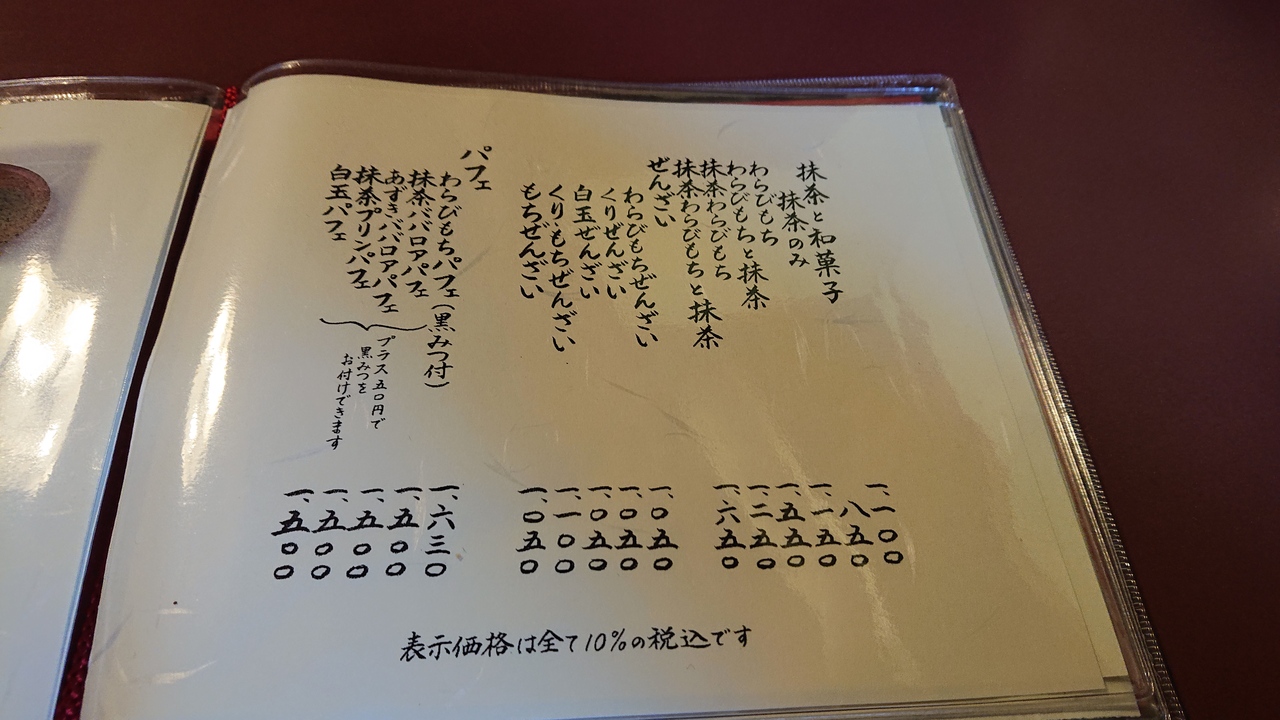 抹茶と和菓子 一、一〇〇
抹茶のみ 八五〇
わらびもち 一、一五〇
わらびもちと抹茶 一、五五〇
抹茶わらびもち 一、二五〇
抹茶わらびもちと抹茶 一、六五〇
ぜんざい
わらびもちぜんざい 一、〇五〇
くりぜんざい 一、〇五〇
白玉ぜんざい 一、〇五〇
くりもちぜんざい 一、一〇〇
もちぜんざい 一、〇五〇
パフェ
わらびもちパフェ(黒みつ付) 一、六三〇
抹茶ババロアパフェ 一、五〇〇
あずきババロアパフェ 一、五〇〇
抹茶プリンパフェ 一、五〇〇
白玉パフェ 一、五〇〇
プラス五〇円で
黒みつを
お付けできます
表示価格は全て10%の税込です